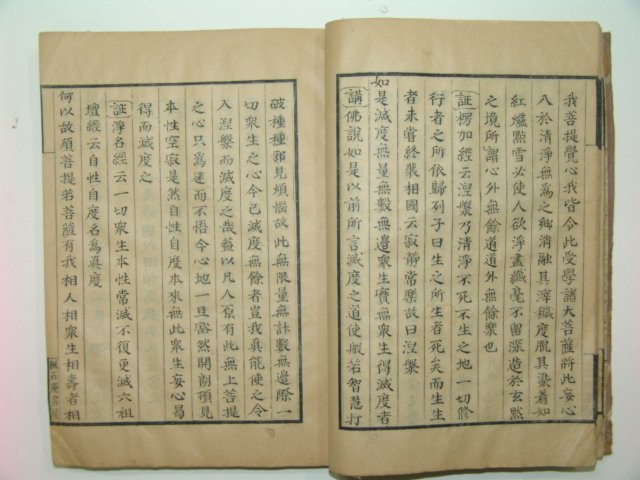 我菩提覺心我皆令此受學諸大菩薩將此妄心
入於清淨無為之鄉消融其滓穢度脫其棄着如
紅爐點雪必使人欲淨盡纖毫不留深造於玄黙
之境所謂心外無餘道道外無餘衆也
証楞加經云涅槃乃清淨不死不生之地一切修
行者之所依歸列子曰生之所生者死矣而生生
者未嘗終裴相國云寂靜常樂故曰涅槃
如是滅度無量無數無邊衆生實無衆生得滅度者
講佛說如是以前所言滅度之道使般若智慧打
破種種邪見煩惱故此無限量無計數無邊際一
切衆生之心令已滅度無餘者豈我真能使之令
入涅槃而滅度之哉葢以凡人原有此無上菩提
之心只為迷而不悟今心地一旦豁然開朗頓見
本性空寂是然自性自度本來無此衆生妄心曷
得而滅度之
証淨名經云一切衆生本性常滅不復更滅六祖
壇經云自性自度名為真度
何以故須菩提若菩薩有我相人相衆生相壽者相